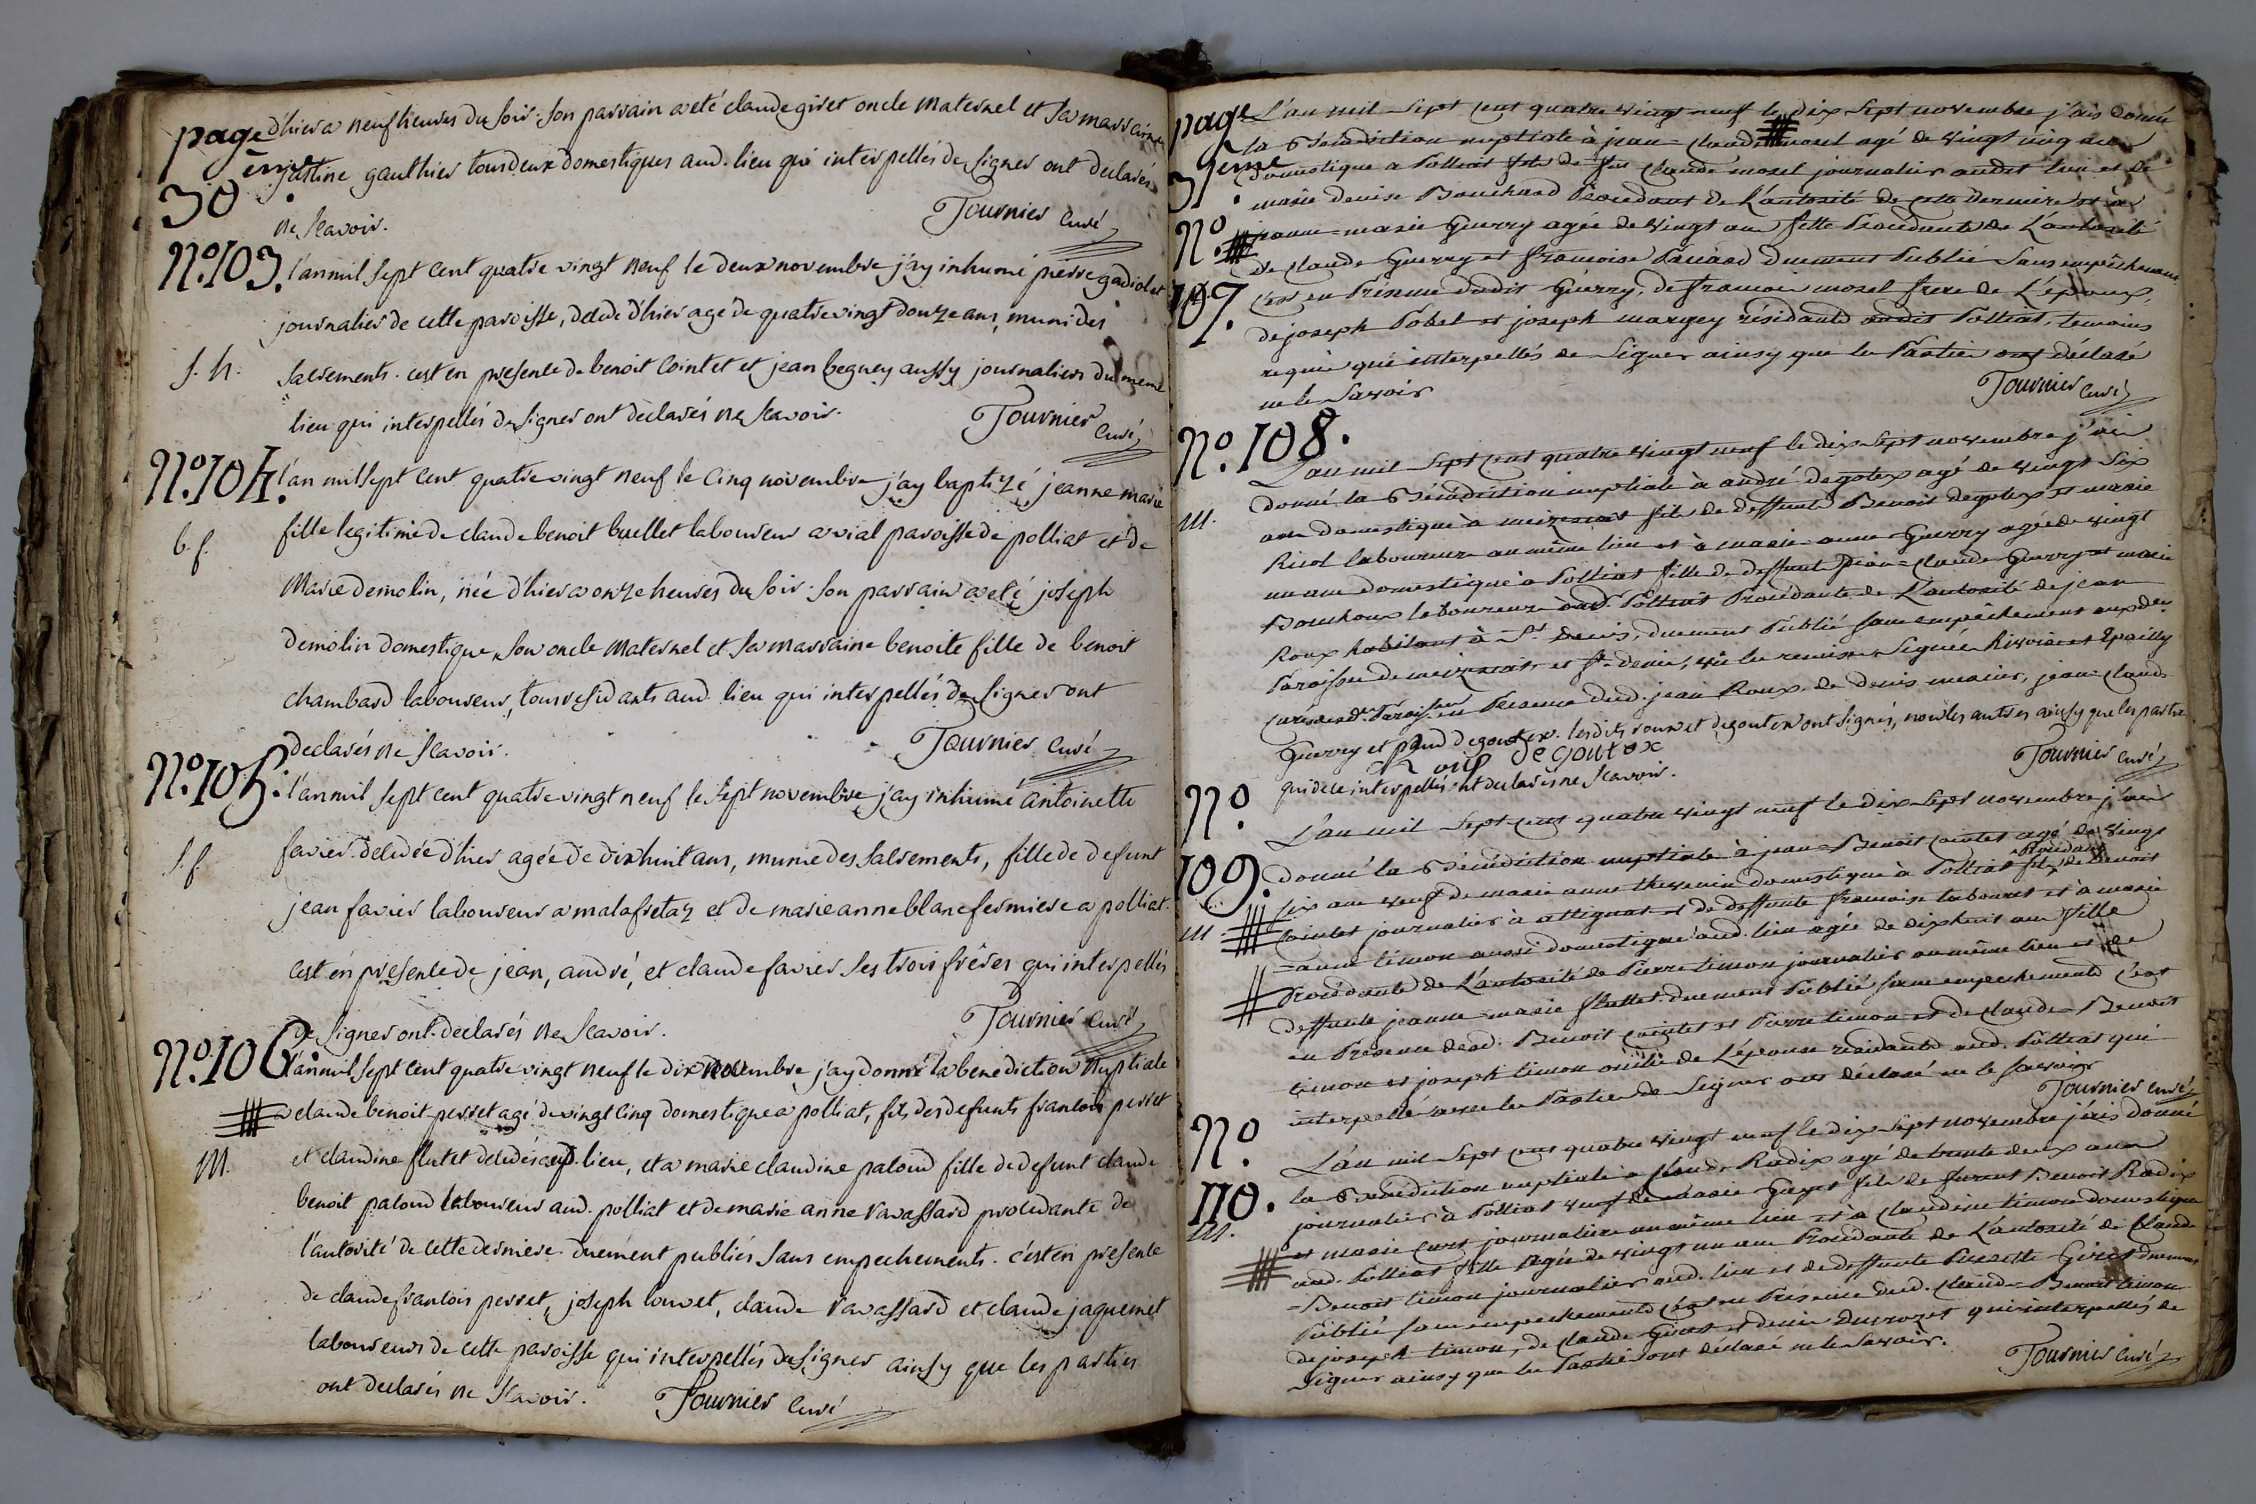 page
30
ème
d'hier a neuf heures du soir. son parrain a eté claude giret oncle maternel et sa marraine
justine gauthier tous deux domestiques aud. lieu qui interpellés de signer ont declarés
ne scavoir. Tournier curé
N.º 103.
l'an mil sept cent quatre vingt neuf le deux novembre j'ay inhumé pierre gadiolet
journalier de cette paroisse, decedé d'hier agé de quatre vingt douze ans, muni des
s. h.
sacrements. c'est en presence de benoit Cointet et jean beguey aussy journaliers du meme
lieu qui interpellés de signer ont declarés ne scavoir. Tournier curé
N.º 104.
l'an mil sept cent quatre vingt neuf le cinq novembre j'ay baptizé jeanne marie
b. f.
fille legitime de claude benoit buellet laboureur a vial paroisse de polliat et de
Marie demolin, née d'hier a onze heures du soir. son parrain a eté joseph
demolin domestique, son oncle maternel et sa marraine benoite fille de benoit
chambard laboureur, tous residants aud. lieu qui interpellés de signer ont
declarés ne scavoir. Tournier curé
N.º 105.
l'an mil sept cent quatre vingt neuf le sept novembre j'ay inhumé antoinette
s. f.
favier decedée d'hier agée de dix huit ans, munie des sacrements, fille de defunt
jean favier laboureur a malafretaz et de marie anne blanc fermiere a polliat.
c'est en presence de jean, andré, et claude favier ses trois frères qui interpellés
de signer ont declarés ne scavoir. Tournier curé
N.º 106.
l'an mil sept cent quatre vingt neuf le dix novembre j'ay donné la benediction nuptiale
a claude benoit perret agé de vingt cinq domestique a polliat, fils des defunts francois perret
M.
et claudine flutet decedés aud. lieu, et a marie claudine paloud fille de defunt claude
benoit paloud laboureur aud. polliat et de marie anne ravassard procedante de
l'autorité de cette derniere. duement publiés sans empechements. c'est en presence
de claude francois perret, joseph louvet, claude ravassard et claude jaquemet
laboureurs de cette paroisse qui interpellés de signer ainsy que les parties
ont declarés ne scavoir. Tournier curé
page
31.
ème
L'an mil sept cent quatre vingt neuf le dix sept novembre j'ais donné
la Bénédiction nuptiale à jean-claude morel agé de vingt cinq ans
domestique a Polliat fils de feu claude morel journalier audit lieu et de
marie denise Bouchard Procedant de L'autorité de cette derniere et à
N.º
107.
jeanne-marie Guerry agée de vingt ans fille Procedante de L'autorité
de claude Guerry et francoise Pauard duement Publié sans empêchement
c'est en Présence dudit Guerry, de francois morel frere de L'epoux,
de joseph Pobel et joseph margey résidants audit Polliat, temoins
requis qui interpellés de signer ainsy que les Parties ont déclaré
ne le savoir Tournier curé
N.º 108.
L'an mil sept cent quatre vingt neuf le dix sept novembre j'ai
M.
donné la Bénédiction nuptiale à andré degotex agé de vingt six
ans domestique à meizeriat fils de deffunts Benoit degotex et marie
Ricol laboureurs au même lieu et à marie-anne Guerry agée de vingt
un ans domestique à Polliat fille de deffunt jean-claude Guerry et marie
Bouchoux laboureurs aud. Polliat Procedante de L'autorité de jean
Roux habitant à St. denis, duement Publié sans empêchement aux deux
Paroisses de meizeriat et St. denis, vu les remises signées Rivoire et Epailly
curés desd. Paroisses en Présence dud. jean Roux. de denis mercier, jean-claude
Guerry et Paud degoutex. lesdits roux et degoutex ont signés, non les autres ainsy que les parties
Roux degoutex
qui de ce interpellés ont declarés ne scavoir. Tournier curé
N.º
109.
L'an mil sept cent quatre vingt neuf le dix sept novembre j'ais
donné la Bénédiction nuptiale à jean-Benoit cointet agé de vingt
Procedant
six ans veuf de marie anne thevenin domestique à Polliat fils de Benoit
M.
Cointet journalier à attignat et de deffunte francoise tabouret et à marie
-anne timon aussi domestique aud. lieu agée de dixhuit ans fille
Procédante de L'autorité de Pierre timon journalier au même lieu et de
deffunte jeanne-marie fluttet. duement Publié sans empechements c'est
en Présence desd. Benoit cointet et Pierre timon et de claude-Benoit
timon et joseph timon oncle de L'épouse résidants aud. Polliat qui
interpellés avec les Parties de signer ont déclaré ne le savoir
Tournier curé
N.º
110.
L'an mil sept cent quatre vingt neuf le dix sept novembre j'ais donné
la Bénédiction nuptiale à claude Radix agé de trente deux ans
journalier à Polliat veuf de marie Guyet fils de furent Benoit Radix
M.
et marie curt journaliers au même lieu et à claudine timon domestique
aud. Polliat fille agée de vingt un ans Procédante de L'autorité de claude
-Benoit timon journalier aud. lieu et de deffunte Pierrette Giret duement
Publié sans empechements c'est en Présence dud. claude-Benoit timon
de joseph timon, de claude Giret et denis ducrozet qui interpellés de
signer ainsy que les Parties ont déclaré ne le savoir. Tournier curé